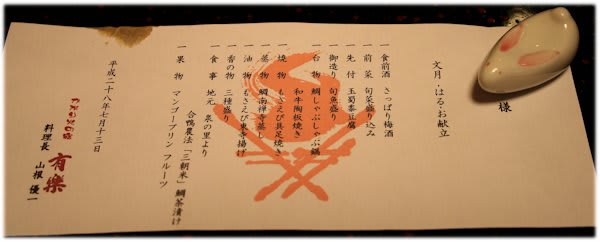 様
文月・はる・お献立
一 食前酒 さっぱり梅酒
一 前菜 旬菜盛り込み
一 先付 玉蜀黍豆腐
一 御造り 旬魚盛り
一 台物 鯛しゃぶしゃぶ鍋
和牛陶板焼き
一 焼物 もさえび具足焼き
一 蒸物 鯛南禅寺蒸し
一 油物 もさえび東寺揚げ
一 香の物 三種盛り
一 食事 地元 泉の里より
合鴨農法「三朝米」鯛茶漬け
一 果物 マンゴープリン フルーツ
平成二十八年七月十三日
有樂
料理長 山根 優一